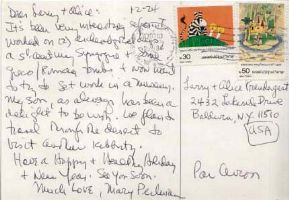 Dear Larry + Alice: 12-24
It's been very interesting
worked on 
a 1st century Synagogue +
Tombs + now want
to try to get work in a museum.
My son, as always has been a
delight to be with. We plan to
travel through the desert to
visit another kibbutz.
Have a Happy + Healthy Holiday
+ New Year. See you soon.
Much Love, Mary
30
50
Larry + Alice
2432
Baldwin, N.Y. 11510
USA
Par Avion